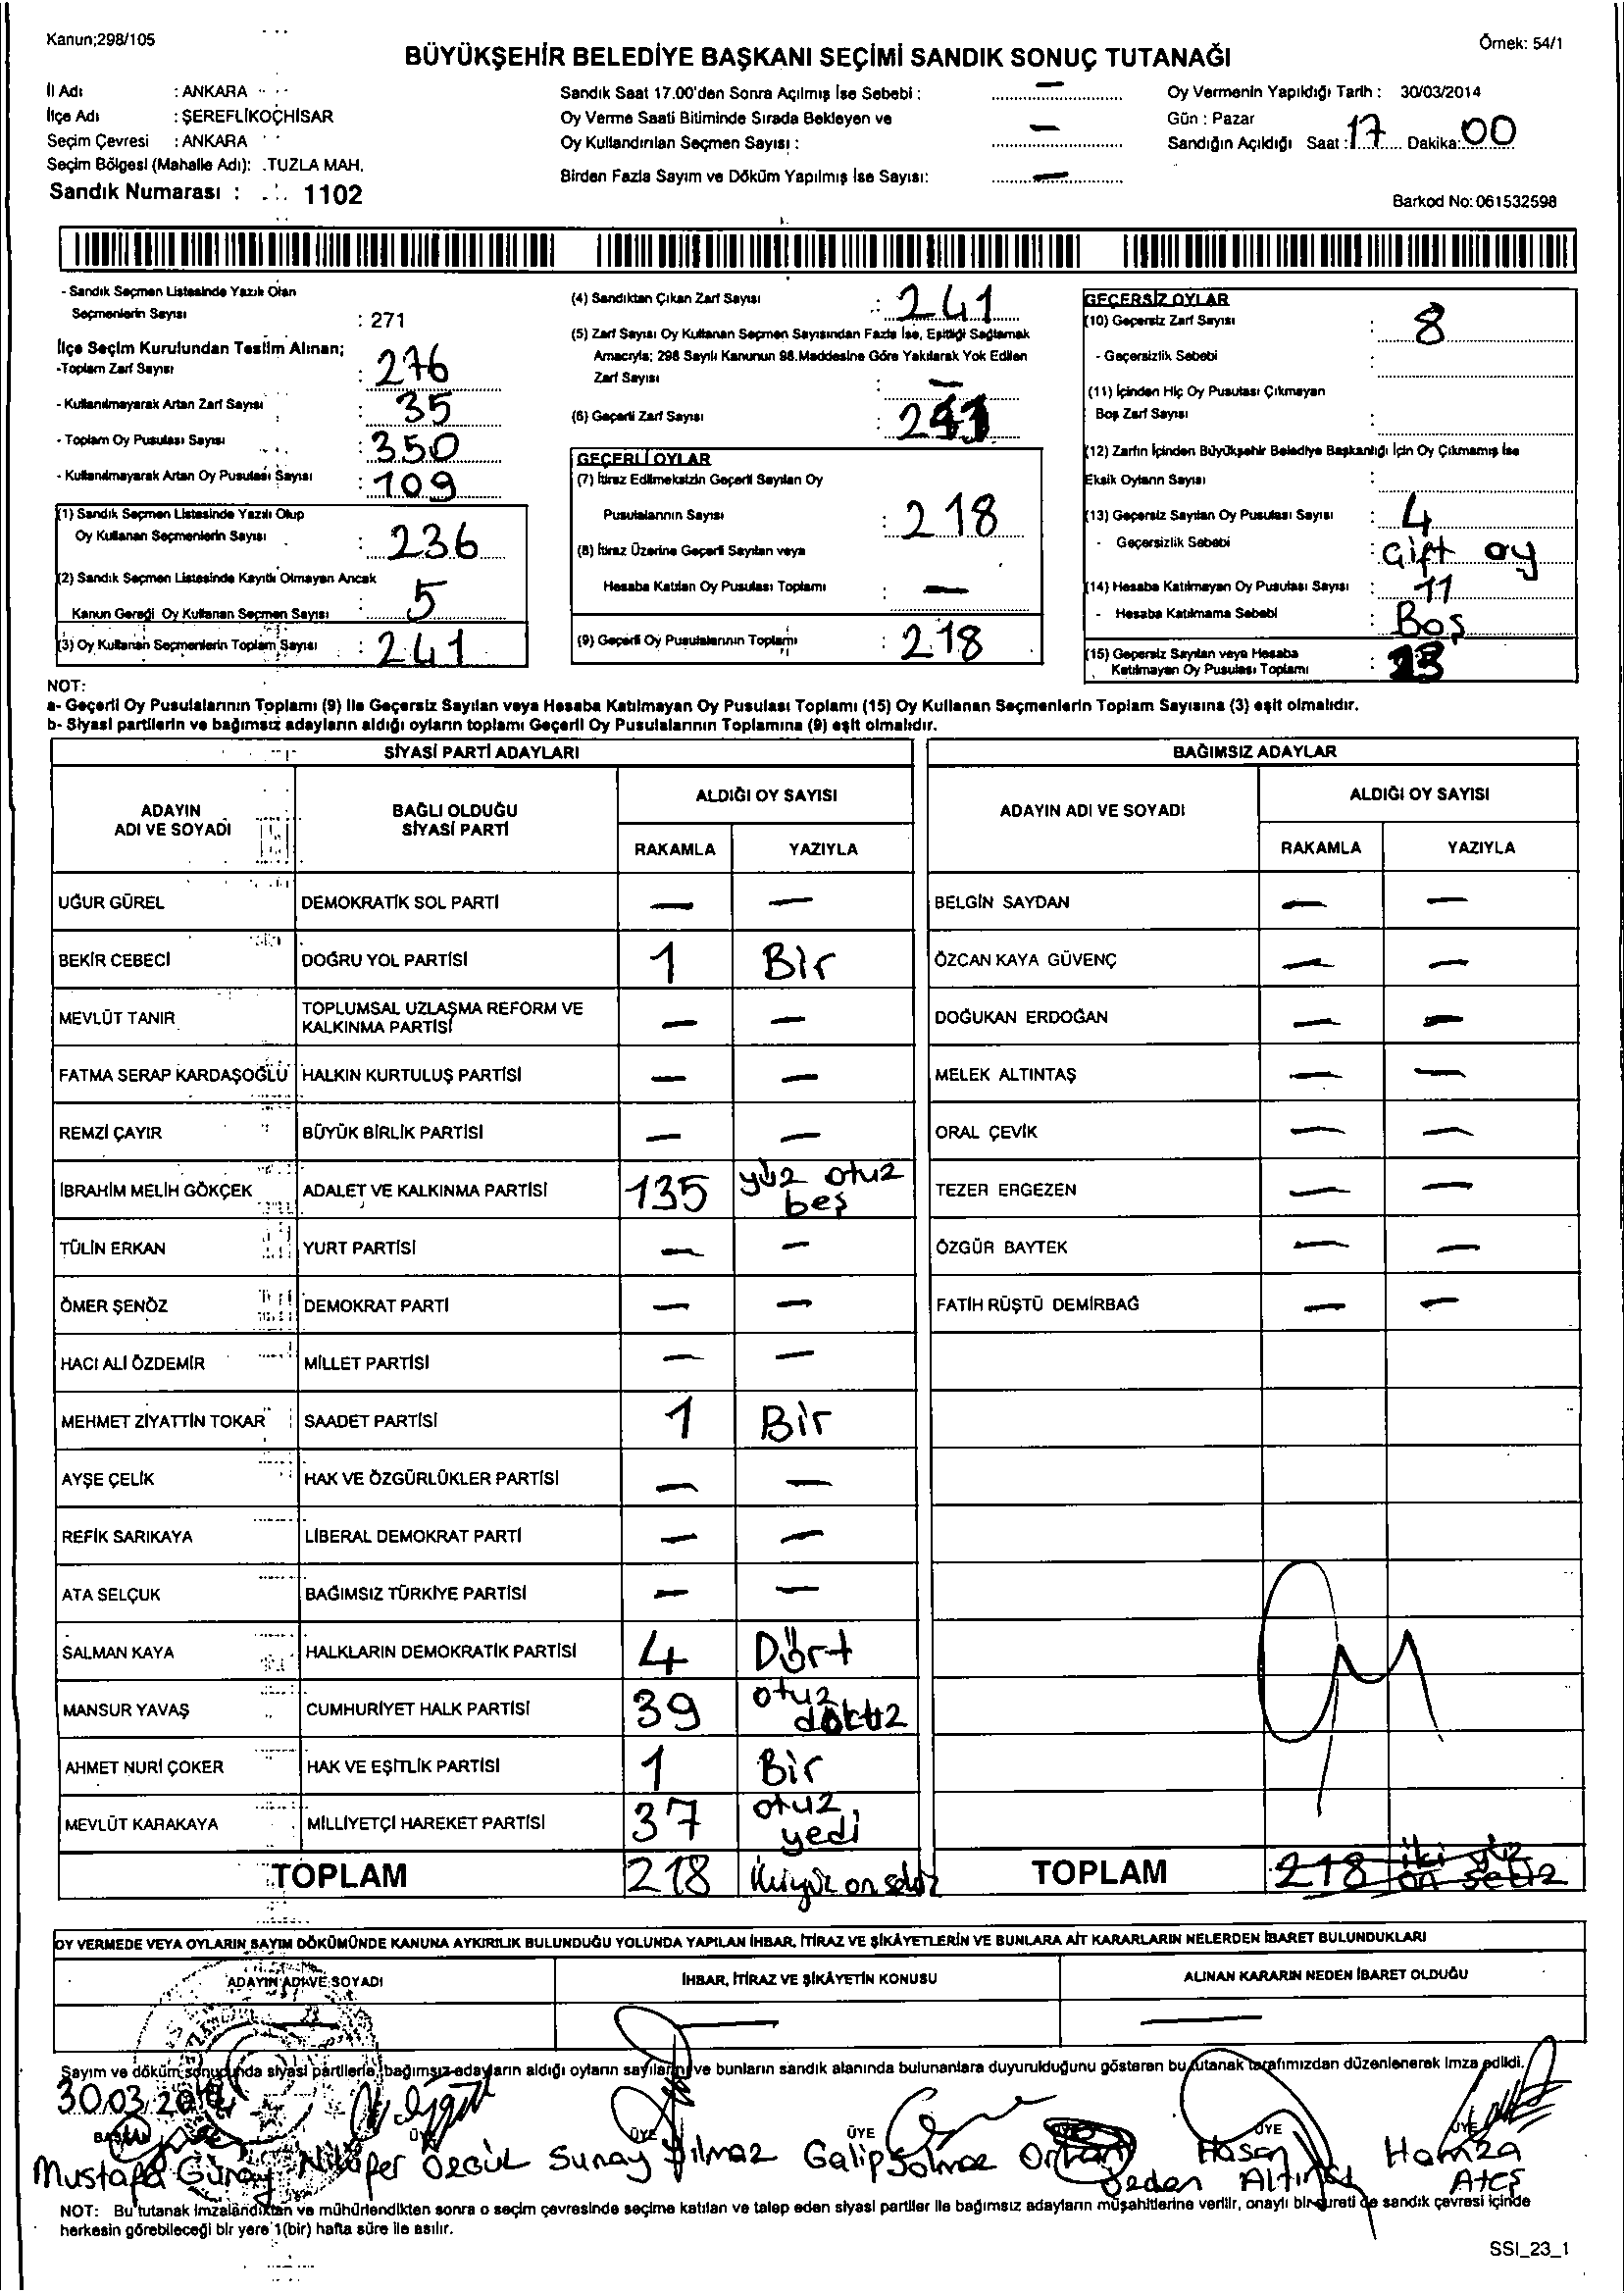 Kanun;298/105
Örnek: 54/1
BÜYÜKŞEHİR BELEDİYE BAŞKANI SEÇİMİ SANDIK SONUÇ TUTANAĞI
İl Adı : ANKARA
İlçe Adı : ŞEREFLİKOÇHİSAR
Seçim Çevresi : ANKARA
Seçim Bölgesi (Mahalle Adı): .TUZLA MAH.
Sandık Numarası : 1102
Sandık Saat 17.00'den Sonra Açılmış İse Sebebi : —
Oy Verme Saati Bitiminde Sırada Bekleyen ve
Oy Kullandırılan Seçmen Sayısı : —
Birden Fazla Sayım ve Döküm Yapılmış İse Sayısı: —
Oy Vermenin Yapıldığı Tarih : 30/03/2014
Gün : Pazar
Sandığın Açıldığı Saat : 17 Dakika: 00
Barkod No: 061532598
- Sandık Seçmen Listesinde Yazılı Olan
Seçmenlerin Sayısı : 271
İlçe Seçim Kurulundan Teslim Alınan;
-Toplam Zarf Sayısı : 276
- Kullanılmayarak Artan Zarf Sayısı : 35
- Toplam Oy Pusulası Sayısı : 350
- Kullanılmayarak Artan Oy Pusulası Sayısı : 109
(1) Sandık Seçmen Listesinde Yazılı Olup
Oy Kullanan Seçmenlerin Sayısı : 236
(2) Sandık Seçmen Listesinde Kayıtlı Olmayan Ancak
Kanun Gereği Oy Kullanan Seçmen Sayısı : 5
(3) Oy Kullanan Seçmenlerin Toplam Sayısı : 241
(4) Sandıktan Çıkan Zarf Sayısı : 241
(5) Zarf Sayısı Oy Kullanan Seçmen Sayısından Fazla İse, Eşitliği Sağlamak
Amacıyla; 298 Sayılı Kanunun 98.Maddesine Göre Yakılarak Yok Edilen
Zarf Sayısı : —
(6) Geçerli Zarf Sayısı :
GEÇERLİ OYLAR
(7) İtiraz Edilmeksizin Geçerli Sayılan Oy
Pusulalarının Sayısı : 218
(8) İtiraz Üzerine Geçerli Sayılan veya
Hesaba Katılan Oy Pusulası Toplamı : —
(9) Geçerli Oy Pusulalarının Toplamı : 218
GEÇERSİZ OYLAR
(10) Geçersiz Zarf Sayısı : 8
- Geçersizlik Sebebi :
(11) İçinden Hiç Oy Pusulası Çıkmayan
Boş Zarf Sayısı :
(12) Zarfın İçinden Büyükşehir Belediye Başkanlığı İçin Oy Çıkmamış İse
Eksik Oyların Sayısı :
(13) Geçersiz Sayılan Oy Pusulası Sayısı : 4
- Geçersizlik Sebebi : Çift oy
(14) Hesaba Katılmayan Oy Pusulası Sayısı : 11
- Hesaba Katılmama Sebebi : Boş
(15) Geçersiz Sayılan veya Hesaba
Katılmayan Oy Pusulası Toplamı : 23
NOT:
a- Geçerli Oy Pusulalarının Toplamı (9) ile Geçersiz Sayılan veya Hesaba Katılmayan Oy Pusulası Toplamı (15) Oy Kullanan Seçmenlerin Toplam Sayısına (3) eşit olmalıdır.
b- Siyasi partilerin ve bağımsız adayların aldığı oyların toplamı Geçerli Oy Pusulalarının Toplamına (9) eşit olmalıdır.
SİYASİ PARTİ ADAYLARI
ADAYIN ADI VE SOYADI BAĞLI OLDUĞU SİYASİ PARTİ ALDIĞI OY SAYISI
RAKAMLA YAZIYLA
UĞUR GÜREL DEMOKRATİK SOL PARTİ — —
BEKİR CEBECİ DOĞRU YOL PARTİSİ 1 Bir
MEVLÜT TANIR TOPLUMSAL UZLAŞMA REFORM VE KALKINMA PARTİSİ — —
FATMA SERAP KARDAŞOĞLU HALKIN KURTULUŞ PARTİSİ — —
REMZİ ÇAYIR BÜYÜK BİRLİK PARTİSİ — —
İBRAHİM MELİH GÖKÇEK ADALET VE KALKINMA PARTİSİ 135 yüz otuz beş
TÜLİN ERKAN YURT PARTİSİ — —
ÖMER ŞENÖZ DEMOKRAT PARTİ — —
HACI ALİ ÖZDEMİR MİLLET PARTİSİ — —
MEHMET ZİYATTİN TOKAR SAADET PARTİSİ 1 Bir
AYŞE ÇELİK HAK VE ÖZGÜRLÜKLER PARTİSİ — —
REFİK SARIKAYA LİBERAL DEMOKRAT PARTİ — —
ATA SELÇUK BAĞIMSIZ TÜRKİYE PARTİSİ — —
SALMAN KAYA HALKLARIN DEMOKRATİK PARTİSİ 4 Dört
MANSUR YAVAŞ CUMHURİYET HALK PARTİSİ 39 otuz dokuz
AHMET NURİ ÇOKER HAK VE EŞİTLİK PARTİSİ 1 Bir
MEVLÜT KARAKAYA MİLLİYETÇİ HAREKET PARTİSİ 37 otuz yedi
TOPLAM 218 ikiyüz on sekiz
BAĞIMSIZ ADAYLAR
ADAYIN ADI VE SOYADI ALDIĞI OY SAYISI
RAKAMLA YAZIYLA
BELGİN SAYDAN — —
ÖZCAN KAYA GÜVENÇ — —
DOĞUKAN ERDOĞAN — —
MELEK ALTINTAŞ — —
ORAL ÇEVİK — —
TEZER ERGEZEN — —
ÖZGÜR BAYTEK — —
FATİH RÜŞTÜ DEMİRBAĞ — —
TOPLAM 218 iki yüz on sekiz
OY VERMEDE VEYA OYLARIN SAYIM DÖKÜMÜNDE KANUNA AYKIRILIK BULUNDUĞU YOLUNDA YAPILAN İHBAR, İTİRAZ VE ŞİKÂYETLERİN VE BUNLARA AİT KARARLARIN NELERDEN İBARET BULUNDUKLARI
ADAYIN ADI VE SOYADI İHBAR, İTİRAZ VE ŞİKÂYETİN KONUSU ALINAN KARARIN NEDEN İBARET OLDUĞU
— — —
Sayım ve döküm sonucunda siyasi partilerle, bağımsız adayların aldığı oyların sayılarını ve bunların sandık alanında bulunanlara duyurulduğunu gösteren bu tutanak tarafımızdan düzenlenerek imza edildi.
30.03.2014
BAŞKAN ÜYE ÜYE ÜYE ÜYE ÜYE
Mustafa Güray Nilüfer Özgül Sunay Yılmaz Galip Solmaz Orhan Hasan Altınso Hamza Ateş
NOT: Bu tutanak imzalandıktan ve mühürlendikten sonra o seçim çevresinde seçime katılan ve talep eden siyasi partiler ile bağımsız adayların müşahitlerine verilir, onaylı bir sureti de sandık çevresi içinde
herkesin görebileceği bir yere 1(bir) hafta süre ile asılır.
SSI_23_1